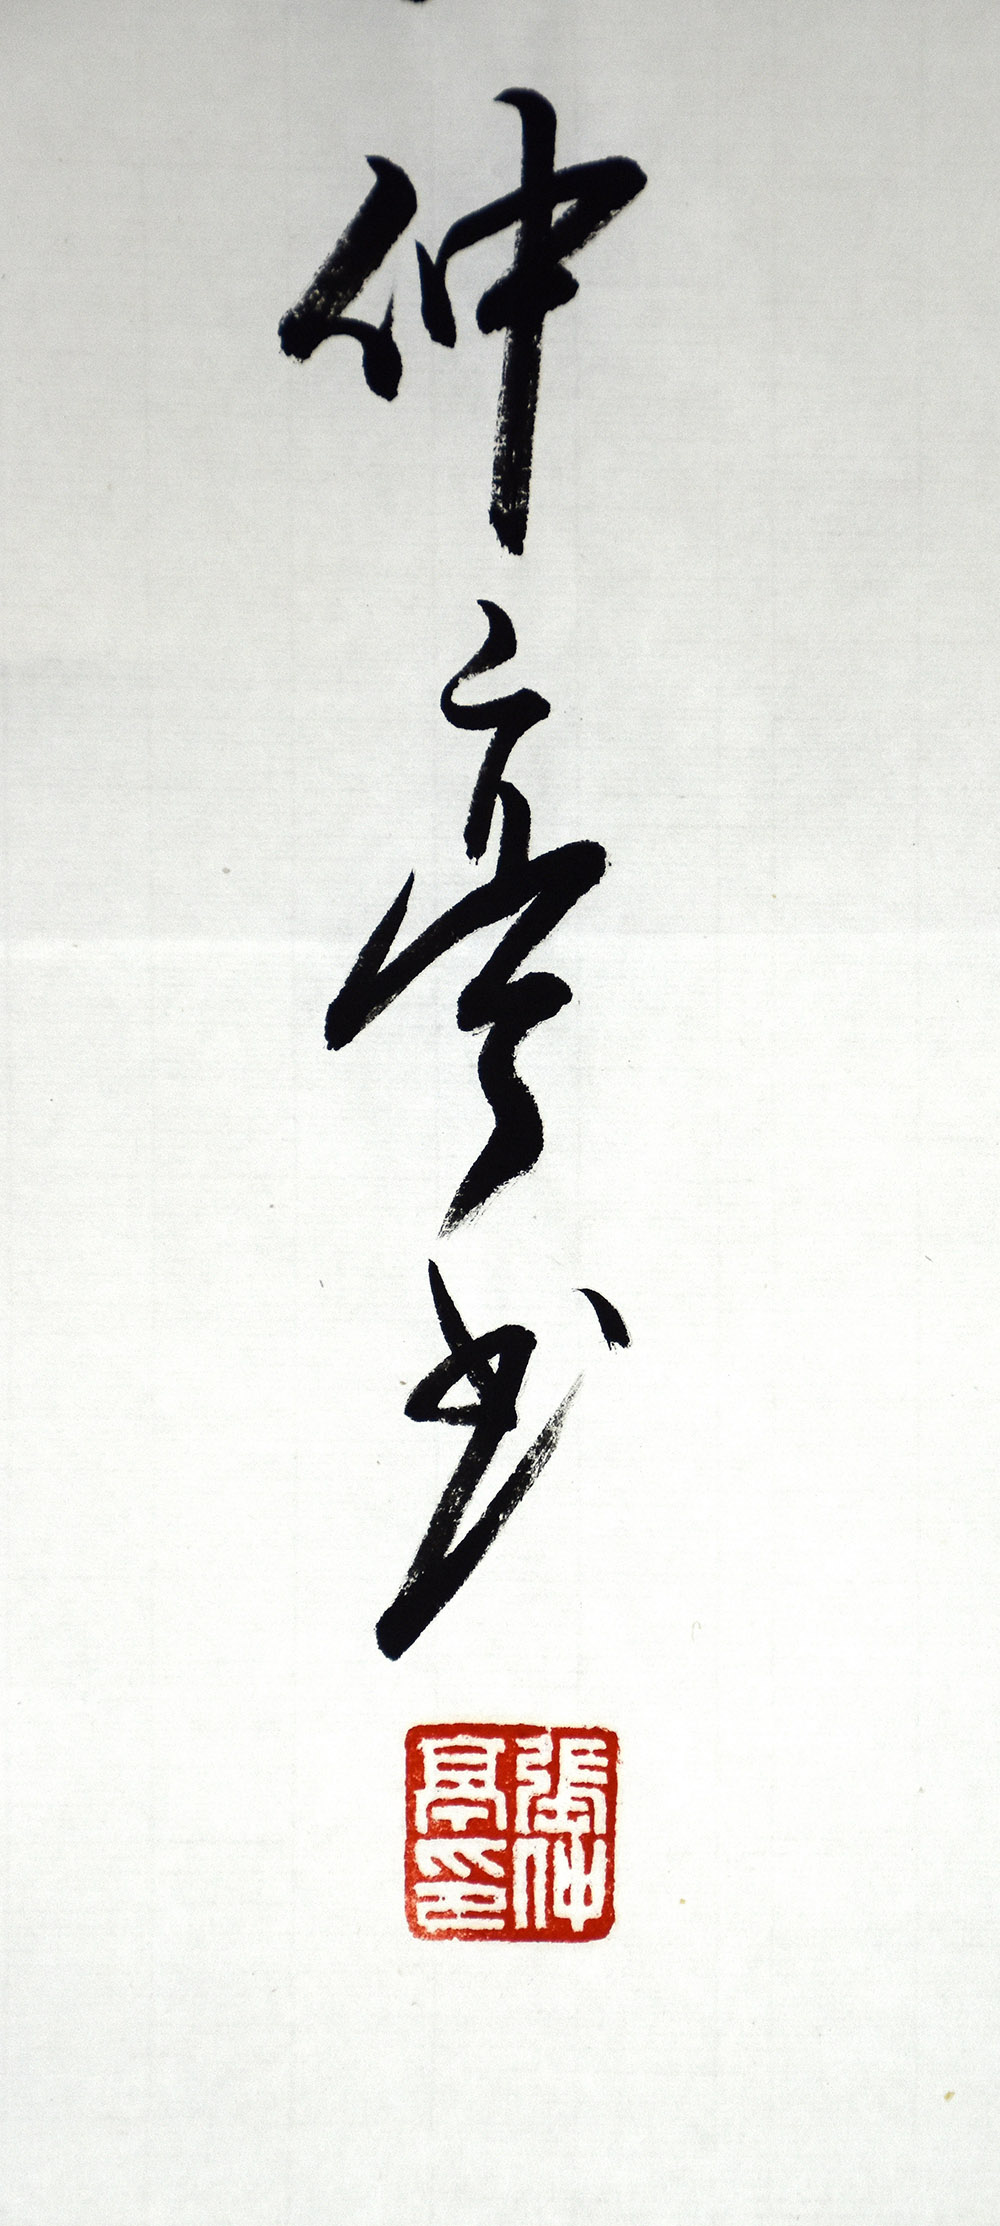 仲亭书
張仲亭印